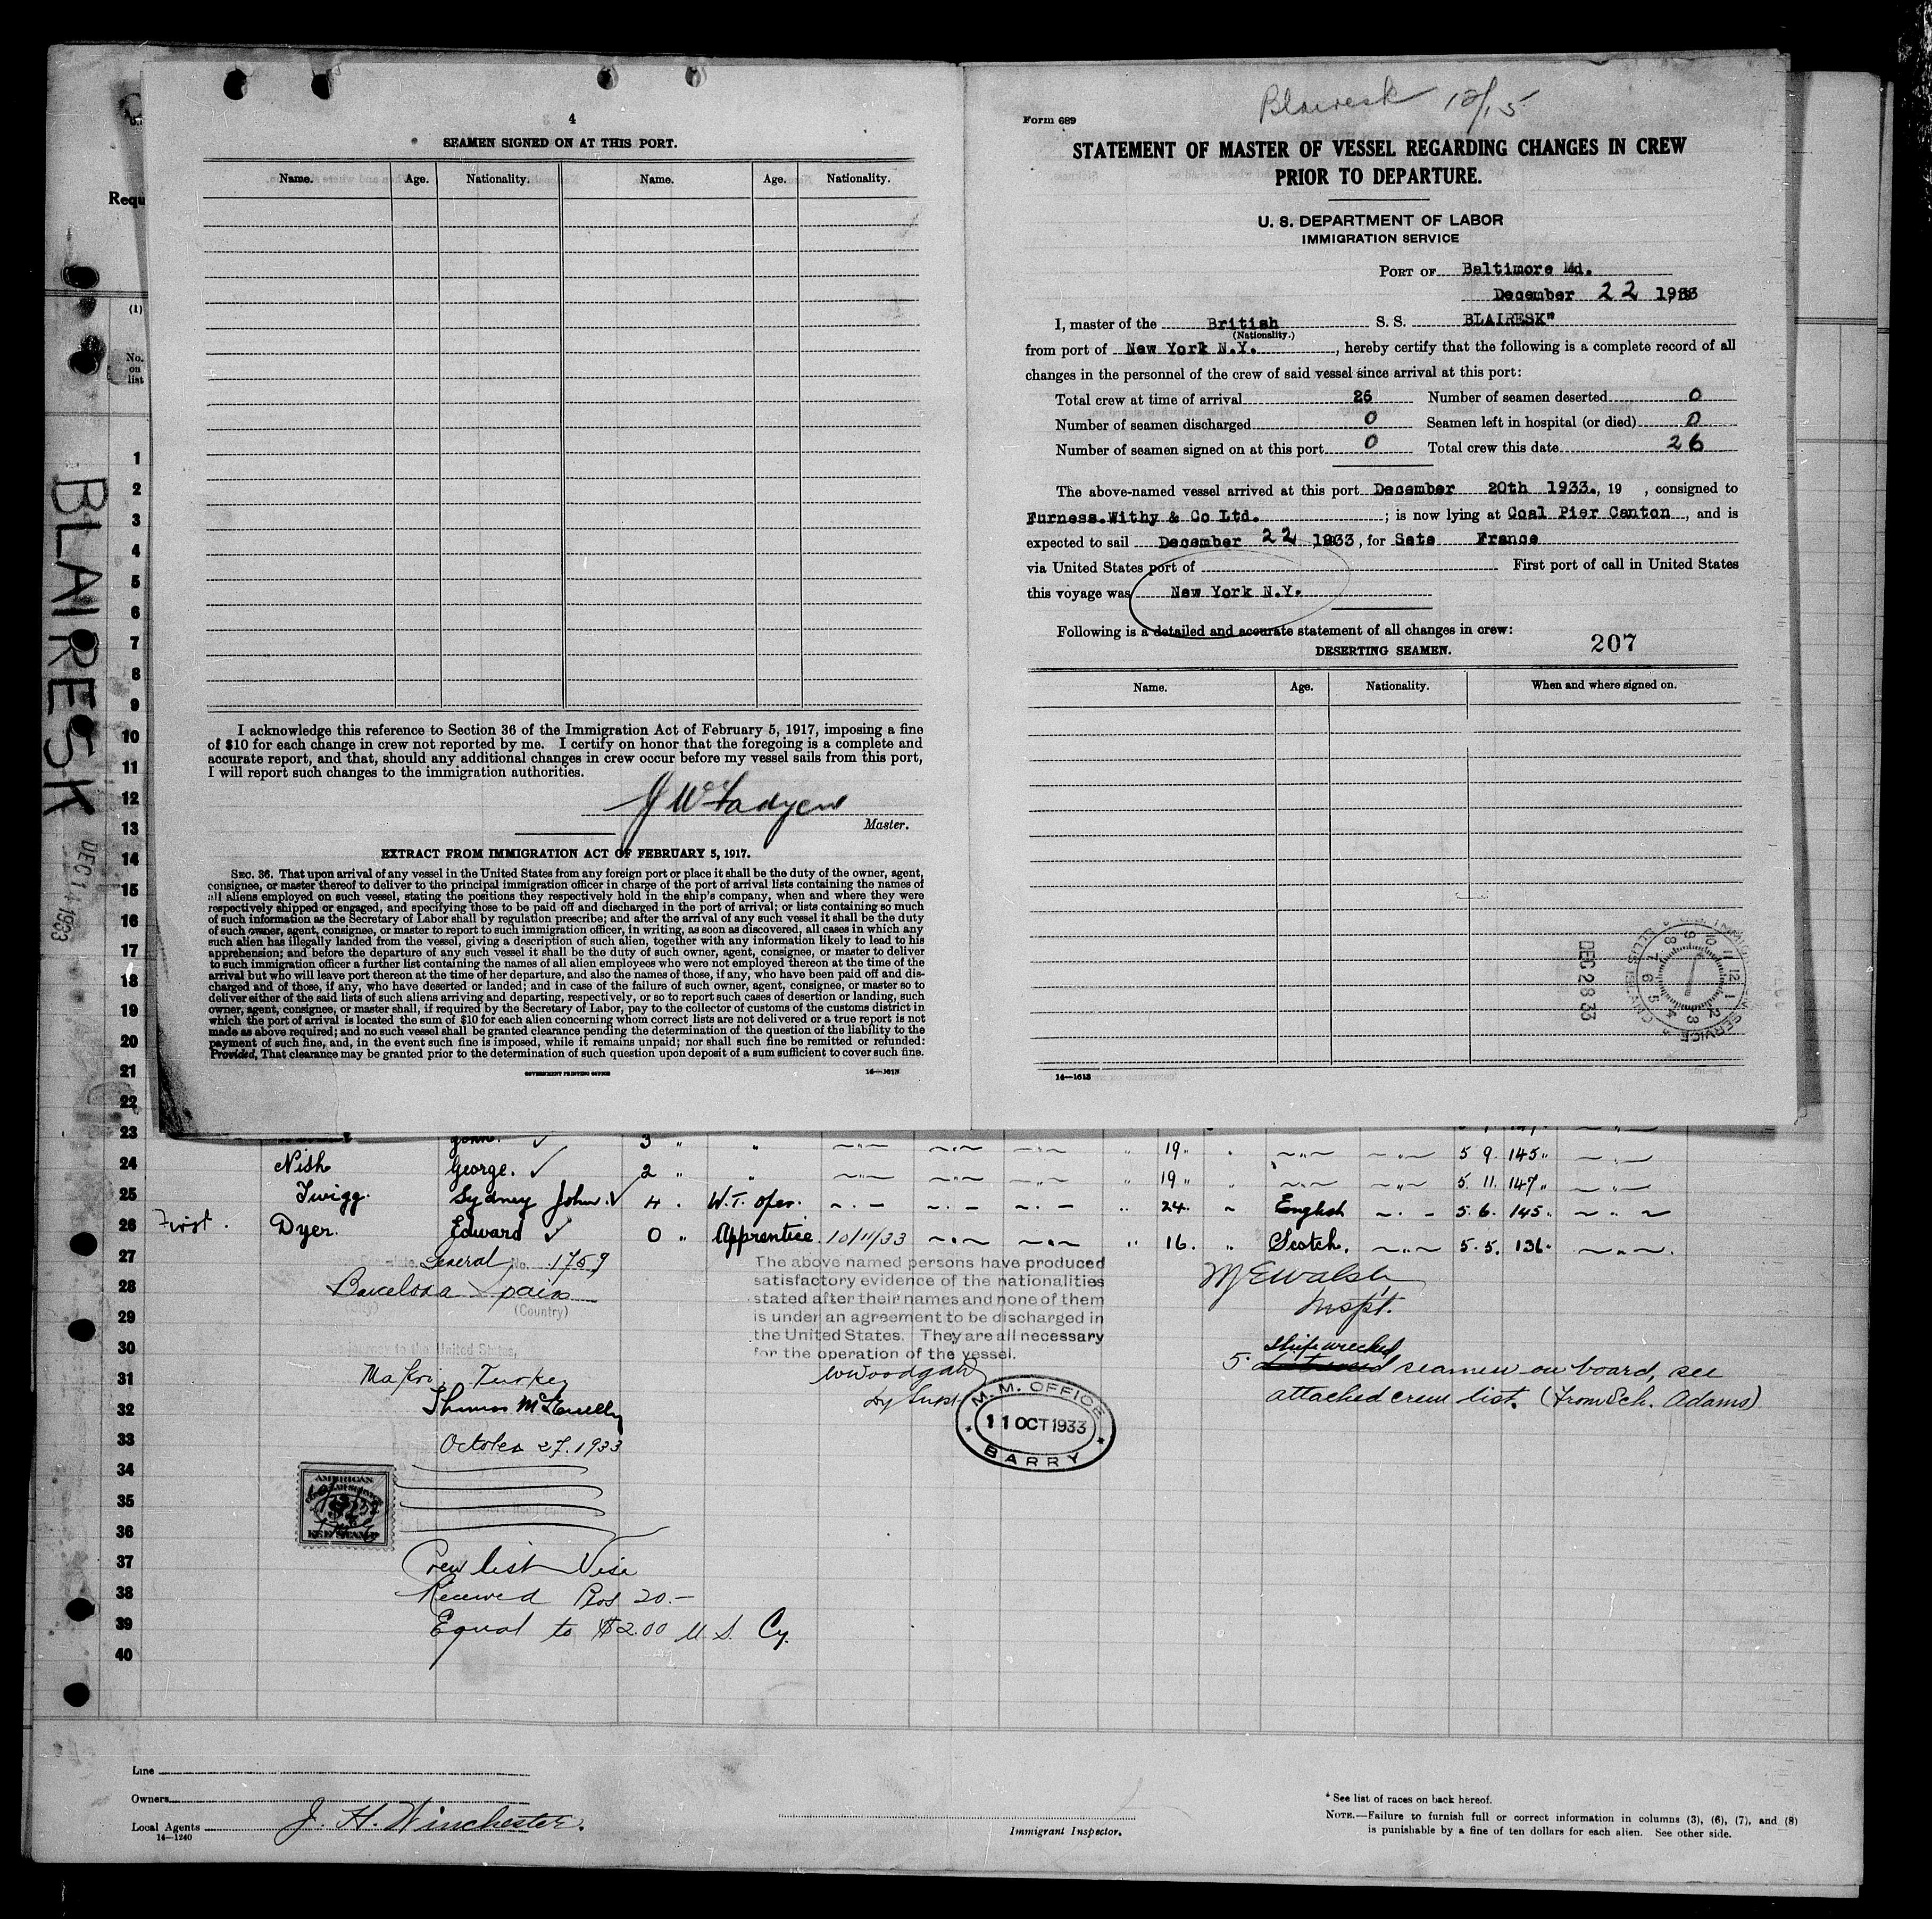 4
SEAMEN SIGNED ON AT THIS PORT.
Name. Age. Nationality. Name. Age. Nationality.
I acknowledge this reference to Section 36 of the Immigration Act of February 5, 1917, imposing a fine
of $10 for each change in crew not reported by me. I certify on honor that the foregoing is a complete and
accurate report, and that, should any additional changes in crew occur before my vessel sails from this port,
I will report such changes to the immigration authorities.
Master.
EXTRACT FROM IMMIGRATION ACT OF FEBRUARY 5, 1917.
SEC. 36. That upon arrival of any vessel in the United States from any foreign port or place it shall be the duty of the owner, agent,
consignee, or master thereof to deliver to the principal immigration officer in charge of the port of arrival lists containing the names of
all aliens employed on such vessel, stating the positions they respectively hold in the ship's company, when and where they were
respectively shipped or engaged, and specifying those to be paid off and discharged in the port of arrival; or lists containing so much
of such information as the Secretary of Labor shall by regulation prescribe; and after the arrival of any such vessel it shall be the duty
of such owner, agent, consignee, or master to report to such immigration officer, in writing, as soon as discovered, all cases in which any
such alien has illegally landed from the vessel, giving a description of such alien, together with any information likely to lead to his
apprehension; and before the departure of any such vessel it shall be the duty of such owner, agent, consignee, or master to deliver
to such immigration officer a further list containing the names of all alien employees who were not employed thereon at the time of the
arrival but who will leave port thereon at the time of her departure, and also the names of those, if any, who have been paid off and dis-
charged and of those, if any, who have deserted or landed; and in case of the failure of such owner, agent, consignee, or master so to
deliver either of the said lists of such aliens arriving and departing, respectively, or so to report such cases of desertion or landing, such
owner, agent, consignee, or master shall, if required by the Secretary of Labor, pay to the collector of customs of the customs district in
which the port of arrival is located the sum of $10 for each alien concerning whom correct lists are not delivered or a true report is not
made as above required; and no such vessel shall be granted clearance pending the determination of the question of the liability to the
payment of such fine, and, in the event such fine is imposed, while it remains unpaid; nor shall such fine be remitted or refunded:
Provided, That clearance may be granted prior to the determination of such question upon deposit of a sum sufficient to cover such fine.
GOVERNMENT PRINTING OFFICE 14—1613
Blairesk 12/15
Form 689
STATEMENT OF MASTER OF VESSEL REGARDING CHANGES IN CREW
PRIOR TO DEPARTURE.
U. S. DEPARTMENT OF LABOR
IMMIGRATION SERVICE
PORT OF Baltimore Md.
December 22 1933
I, master of the British S. S. BLAIRESK"
(Nationality.)
from port of New York N.Y. , hereby certify that the following is a complete record of all
changes in the personnel of the crew of said vessel since arrival at this port:
Total crew at time of arrival 26 Number of seamen deserted 0
Number of seamen discharged 0 Seamen left in hospital (or died) 0
Number of seamen signed on at this port 0 Total crew this date 26
The above-named vessel arrived at this port December 20th 1933., 19 , consigned to
Furness.Withy & Co Ltd. ; is now lying at Coal Pier Canton , and is
expected to sail December 22 1933, for Sete France
via United States port of First port of call in United States
this voyage was New York N.Y.
Following is a detailed and accurate statement of all changes in crew:
207
DESERTING SEAMEN.
Name. Age. Nationality. When and where signed on.
DEC 28 33
14—1613
Requ
(1)
No.
on
list
BLAIRESK
DEC 14 1933
1
2
3
4
5
6
7
8
9
10
11
12
13
14
15
16
17
18
19
20
21
22
23 John. ✓ 3 " " 19
24 Nish George. ✓ 2 " " 19 5 9. 145
25 Twigg. Sydney John. ✓ 4 . W.T. Oper. 24. English 5. 6. 145
26 First. Dyer. Edward ✓ 0 " Apprentice 10/11/33 16. Scotch. 5. 5. 136
27 General No. 1759
28 Barcelona Spain
(Country)
29
30 journey to the United States,
31 Makri, Turkey
32
33 October 27. 1933
34
35
36
37 Crew list Visé
38 Received Pts 20.—
39 Equal to $2.00 U.S. Cy.
40
AMERICAN
FEE STAMP
The above named persons have produced
satisfactory evidence of the nationalities
stated after their names and none of them
is under an agreement to be discharged in
the United States. They are all necessary
for the operation of the vessel.
M. M. OFFICE
11 OCT 1933
BARRY
M E Walsh
Inspt.
shipwrecked
5 seamen on board, see
attached crew list. (From Sch. Adams)
Line
Owners
Local Agents J. H. Winchester.
14—1240
Immigrant Inspector.
* See list of races on back hereof.
NOTE.—Failure to furnish full or correct information in columns (3), (6), (7), and (8)
is punishable by a fine of ten dollars for each alien. See other side.